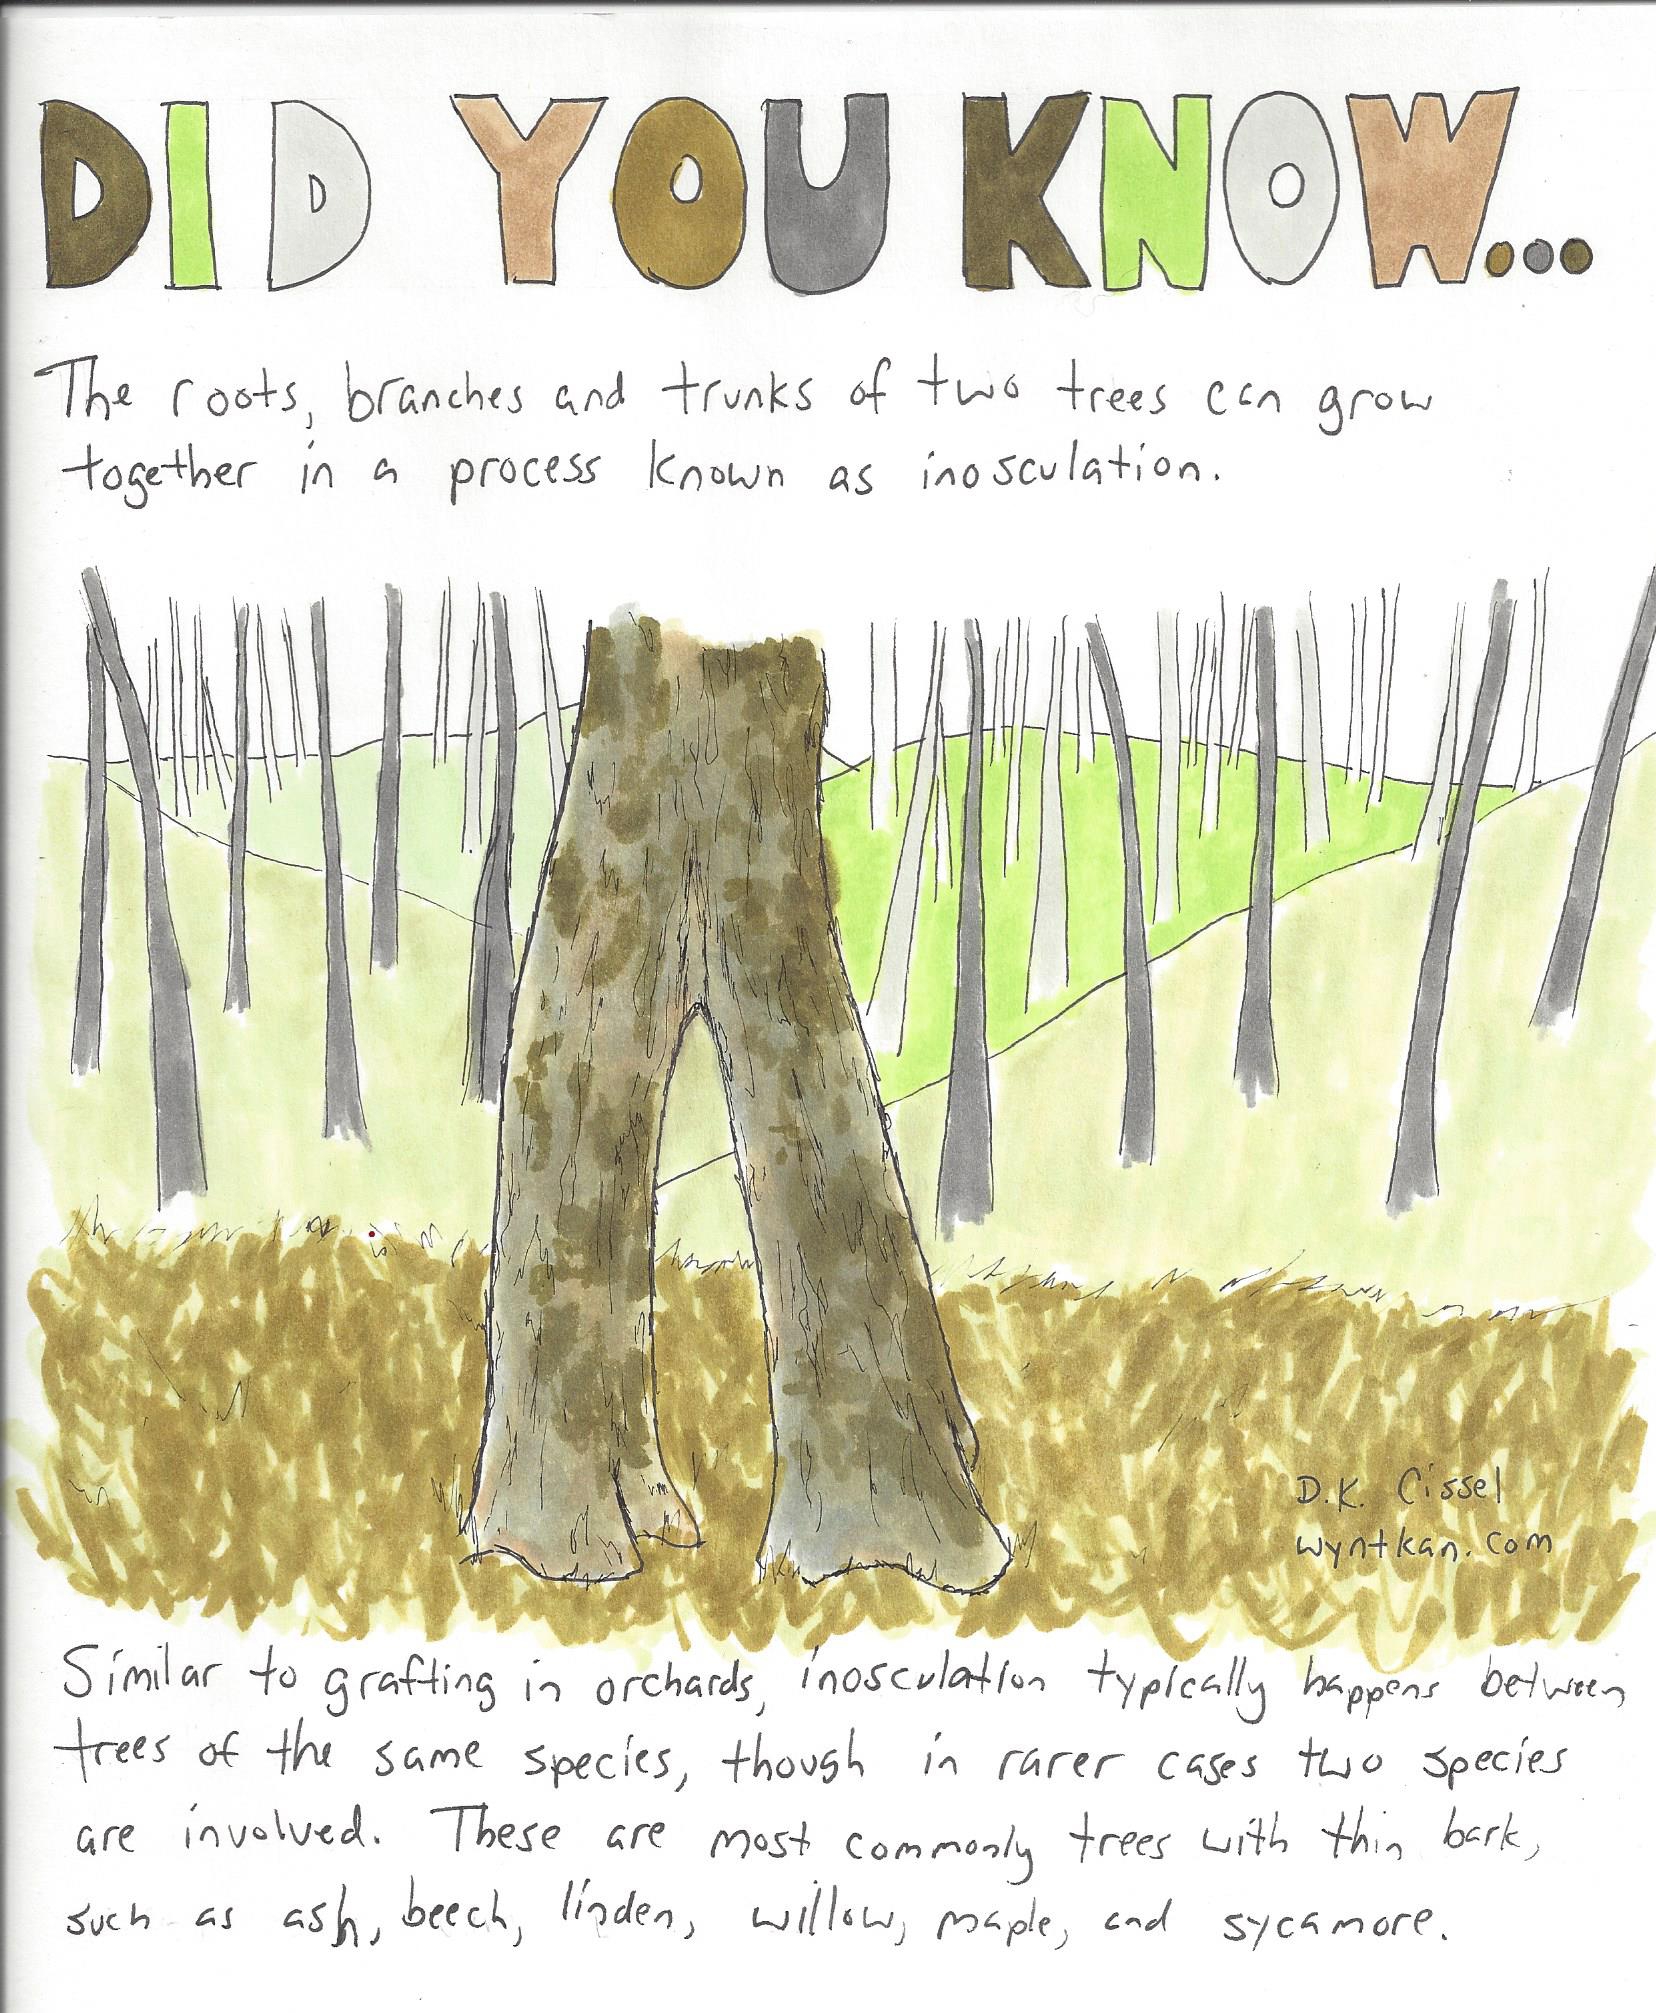 DID YOU KNOW...
The roots, branches and trunks of two trees can grow
together in a process known as inosculation.
D.K. Cissel
wyntkan.com
Similar to grafting in orchards, inosculation typically happens between
trees of the same species, though in rarer cases two species
are involved. These are most commonly trees with thin bark,
such as ash, beech, linden, willow, maple, and sycamore.